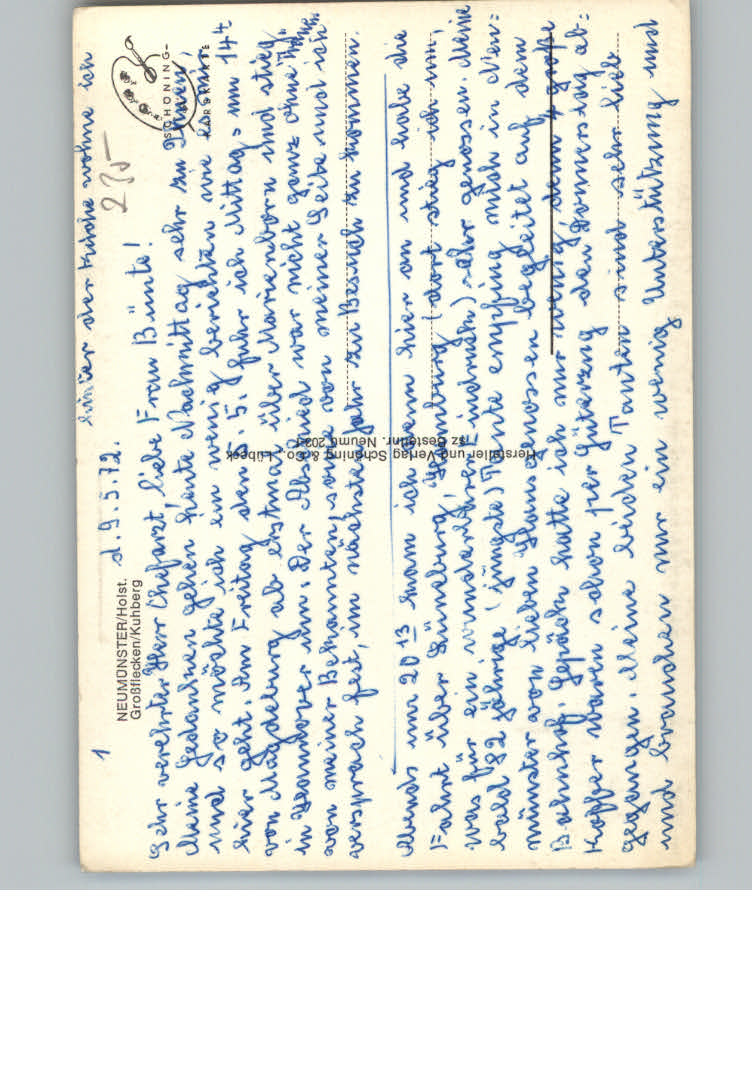 hinter der Kirche wohne ich
1
NEUMÜNSTER/Holst.
Großflecken/Kuhberg
d. 9.5.72.
2 35
SCHÖNING-
FARBKARTE
Sehr verehrter Herr Chefarzt, liebe Frau Bünte!
Meine Gedanken gehen heute Nachmittag sehr zu Ihnen,
und so möchte ich ein wenig berichten wie es mir
hier geht. Am Freitag den 5.5. fuhr ich Mittags um 14
von Magdeburg ab erstmal über Marienborn und stieg
in Hannover um. Der Abschied war nicht ganz ohne
von meiner Bekannten, sowie von meiner Seite und ich
versprach fest, im nächsten Jahr zu Besuch zu kommen.
Abends um 20 13 kam ich dann hier an und habe die
Fahrt über Lüneburg, Hamburg (dort stieg ich um,
was für ein wunderbarer Eindruck) sehr genossen. Meine
bald 82 jährige (jüngste) Tante empfing mich in Neu=
münster von lieben Hausgenossen begleitet auf dem
Bahnhof. Gepäck hatte ich nur wenig, denn 4 große
Koffer waren schon per Güterzug den Donnerstag ab=
gegangen. Meine beiden Tanten sind sehr lieb
und brauchen nur ein wenig Unterstützung und
Hersteller und Verlag Schöning & Co., Lübeck
Bestellnr. Neumü 203